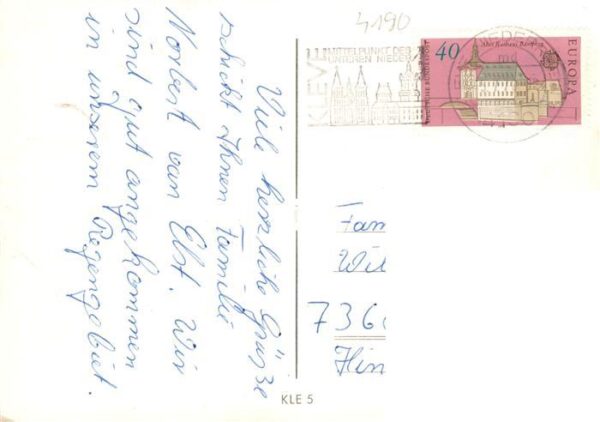 Viele herzliche Grüsse
schickt Ihnen Familie
Norbert van Elst. Wir
sind gut angekommen
in unserem Regengebiet.
4190
KLEVE
MITTELPUNKT DES
UNTEREN NIEDER
40
DEUTSCHE BUNDESPOST
Altes Rathaus Bamberg
EUROPA
Fam
Wil
736
Hin
KLE 5